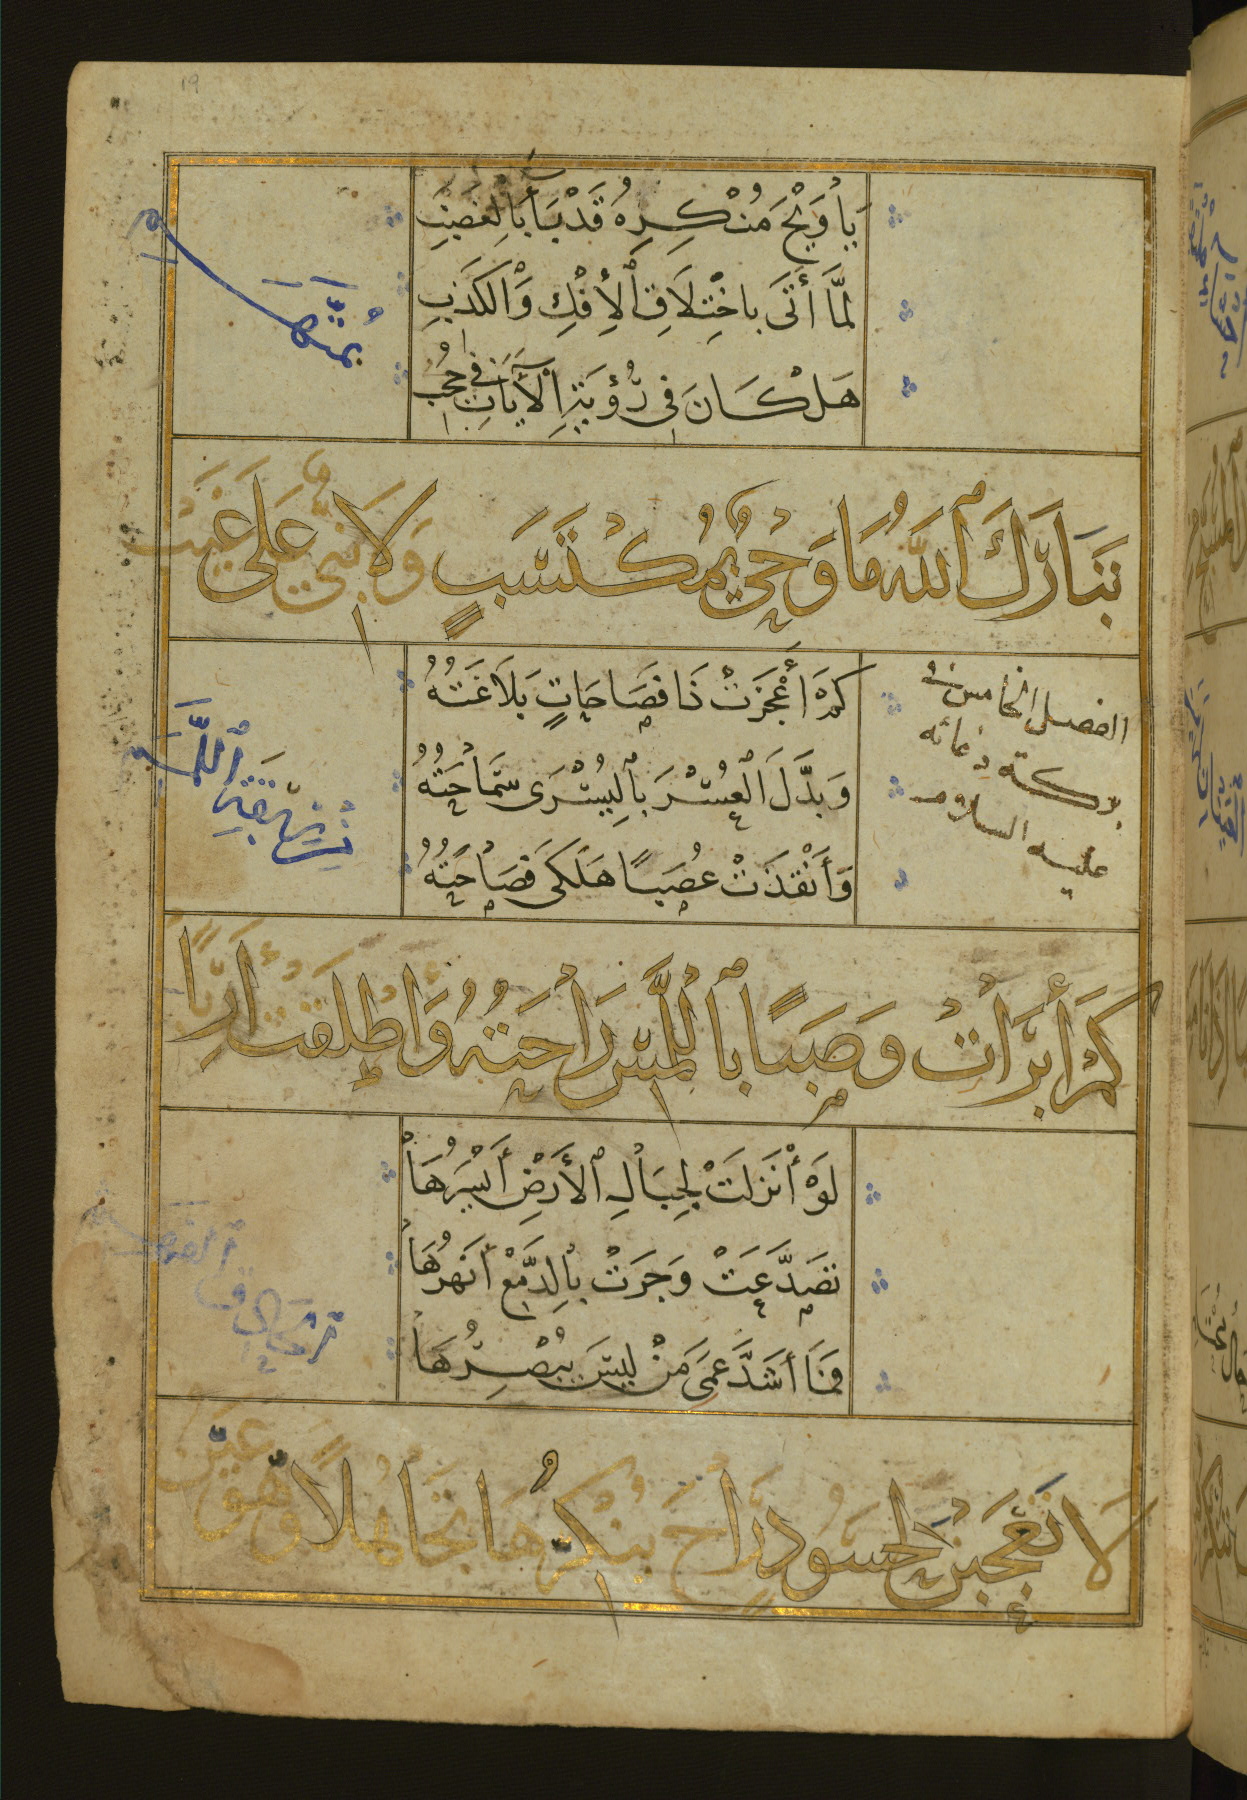 ١٩
يَا وَيْحَ مُنْكِرِهُ قَدْ بَاءَ بِالغَضَبِ
لَمَّا أَتَى بِاخْتِلَاقِ ٱلْإِفْكِ وَالكَذِبِ
هَلْ كَانَ فِى رُؤْيَةِ الْآيَاتِ فِي حُجُبِ
بمتهم
تَبَارَكَ ٱللَّهُ مَا وَحْيٌ بِمُكْتَسَبٍ وَلَا نَبِيٌّ عَلَى غَيْبٍ
الفصل الخامس في
بركة دعائه
عليه السلام
كَمْ أَعْجَزَتْ ذَا فَصَاحَاتٍ بَلَاغَتُهُ
وَبَدَّلَ الْعُسْرَ بِالْيُسْرَى سَمَاحَتُهُ
وَأَنْقَذَتْ عُصَبًا هَلْكَى فَصَاحَتُهُ
ربقة اللمم
كَمْ أَبْرَأَتْ وَصِبًا بِاللَّمْسِ رَاحَتُهُ وَأَطْلَقَتْ أَرِبًا
لَوْ أُنْزِلَتْ لِجِبَالِ ٱلْأَرْضِ أَيْسَرُهَا
تَصَدَّعَتْ وَجَرَتْ بِالدَّمْعِ أَنْهُرُهَا
فَمَا أَشَدَّ عَمَى مَنْ لَيْسَ يُبْصِرُهَا
الحاذق الفهم
لَا تَعْجَبَنْ لِحَسُودٍ رَاحَ يُنْكِرُهَا تَجَاهُلًا وَهْوَ عَيْنُ